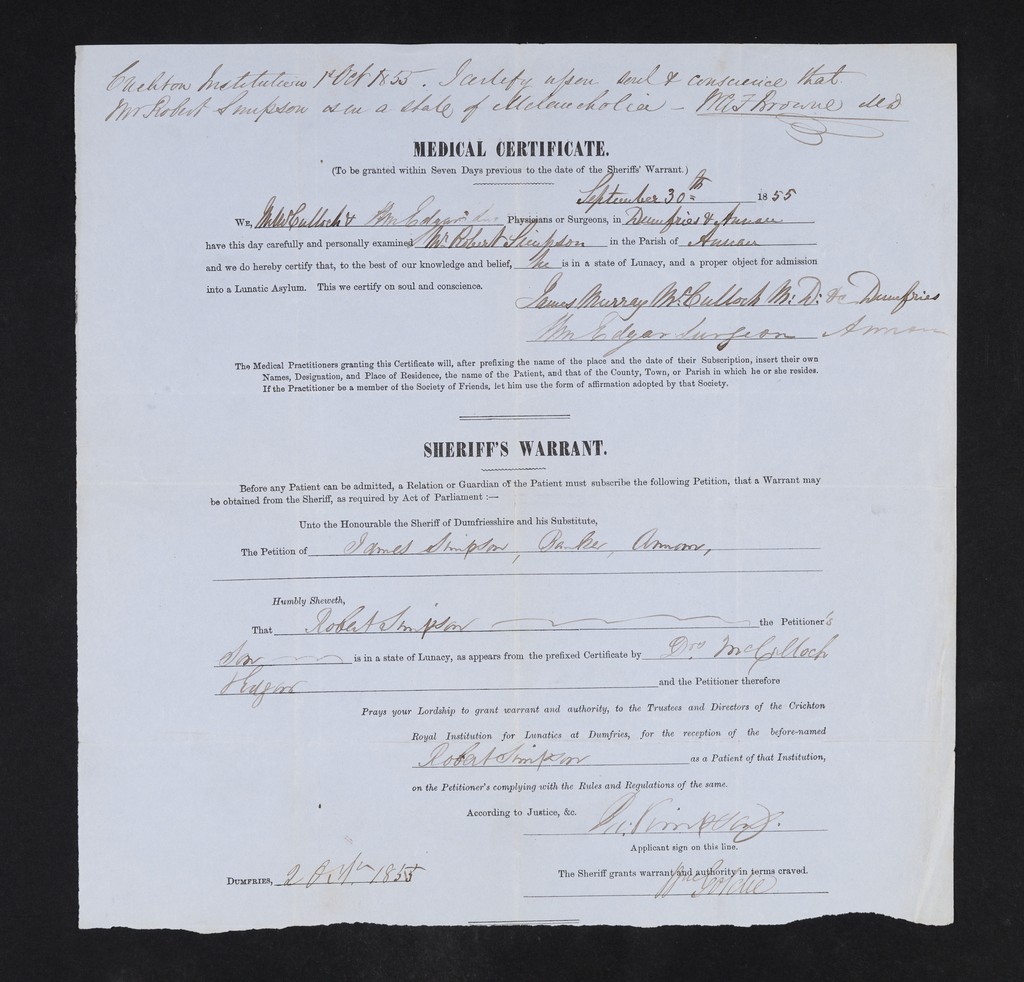 Crichton Institution 1st Oct 1855. I certify upon soul & conscience that
Mr Robert Simpson is in a state of Melancholia – W A F Browne MD
MEDICAL CERTIFICATE.
(To be granted within Seven Days previous to the date of the Sheriffs' Warrant.)
September 30th 1855
We, McCulloch & Wm Edgar Physicians or Surgeons, in Dumfries & Annan
have this day carefully and personally examined Mr Robert Simpson in the Parish of Annan
and we do hereby certify that, to the best of our knowledge and belief, he is in a state of Lunacy, and a proper object for admission
into a Lunatic Asylum. This we certify on soul and conscience.
James Murray McCulloch M: D: &c Dumfries
Wm Edgar Surgeon Annan
The Medical Practitioners granting this Certificate will, after prefixing the name of the place and the date of their Subscription, insert their own
Names, Designation, and Place of Residence, the name of the Patient, and that of the County, Town, or Parish in which he or she resides.
If the Practitioner be a member of the Society of Friends, let him use the form of affirmation adopted by that Society.
SHERIFF'S WARRANT.
Before any Patient can be admitted, a Relation or Guardian of the Patient must subscribe the following Petition, that a Warrant may
be obtained from the Sheriff, as required by Act of Parliament :—
Unto the Honourable the Sheriff of Dumfriesshire and his Substitute,
The Petition of James Simpson, Banker, Annan,
Humbly Sheweth,
That Robert Simpson the Petitioner's
Son is in a state of Lunacy, as appears from the prefixed Certificate by Drs McCulloch
& Edgar and the Petitioner therefore
Prays your Lordship to grant warrant and authority, to the Trustees and Directors of the Crichton
Royal Institution for Lunatics at Dumfries, for the reception of the before-named
Robert Simpson as a Patient of that Institution,
on the Petitioner's complying with the Rules and Regulations of the same.
According to Justice, &c.
Simpson.
Applicant sign on this line.
Dumfries, 2 Octr 1855
The Sheriff grants warrant and authority in terms craved.
Wm Goldie